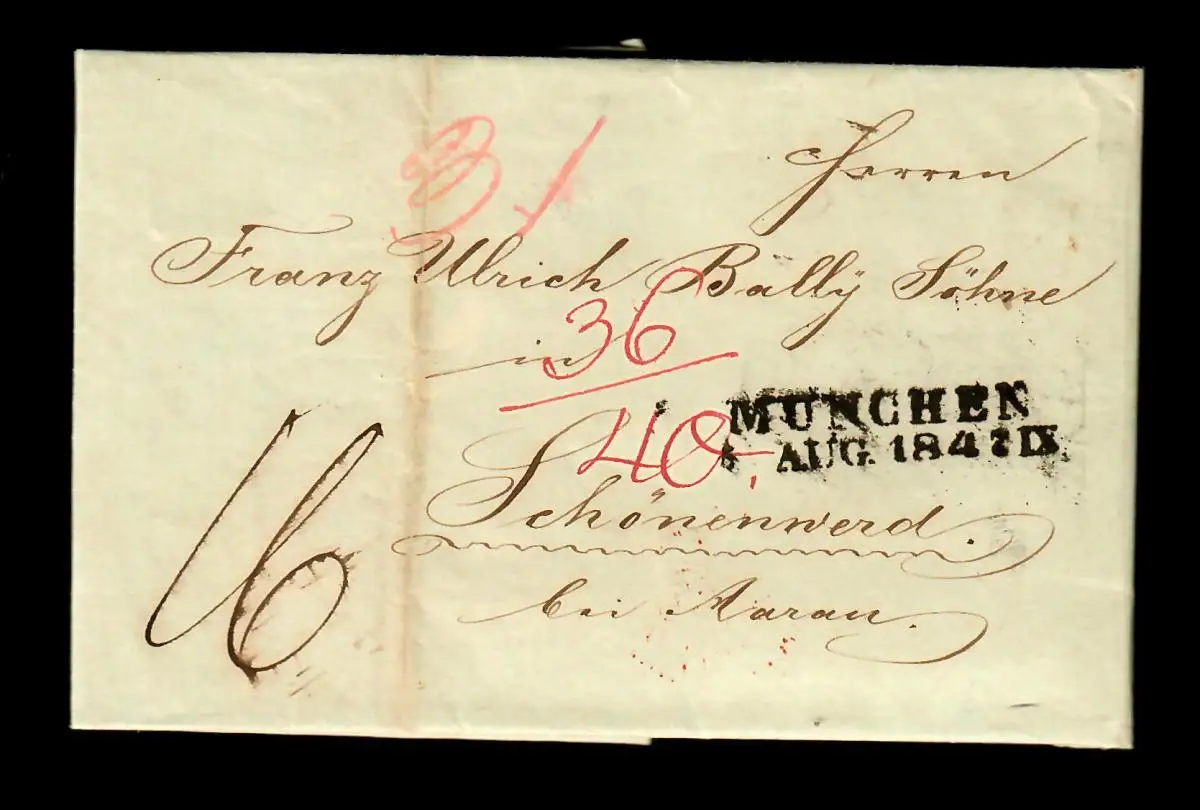 Herren
Franz Ulrich Bally Söhne
in
36
40
MÜNCHEN
AUG. 1847 IX
Schönenwerd.
bei Aarau.
16